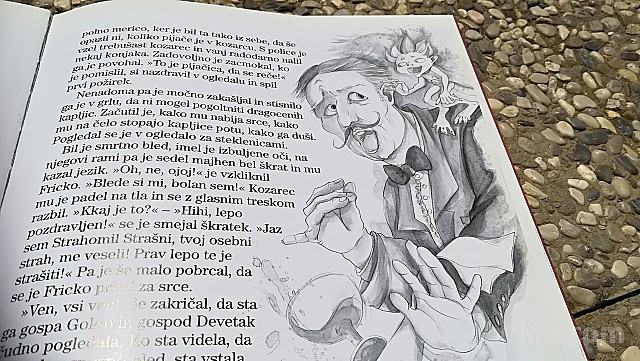 polno merico, ker je bil ta tako iz sebe, da še
opazil ni, koliko pijače je v kozarcu. S police je
vzel trebušast kozarec in vanj radodarno nalil
nekaj konjaka. Zadovoljno je zacmokal, ko
ga je povohal. »To je pijačica, da se reče!«
je pomislil, si nazdravil v ogledalu in spil
prvi požirek.
Nenadoma pa je močno zakašljal in stisnilo
ga je v grlu, da ni mogel pogoltniti dragocenih
kapljic. Začutil je, kako mu nabija srce, kako
mu na čelo stopajo kapljice potu, kako ga duši.
Pogledal se je v ogledalo za steklenicami.
Bil je smrtno bled, imel je izbuljene oči, na
njegovi rami pa je sedel majhen bel škrat in mu
kazal jezik. »Oh, ne, ojoj!« je vzkliknil
Fricko. »Blede si mi, bolan sem!« Kozarec
mu je padel na tla in se z glasnim treskom
razbil. »Kkaj je to?« – »Hihi, lepo
pozdravljen!« se je smejal škratek. »Jaz
sem Strahomil Strašni, tvoj osebni
strah, me veseli! Prav lepo te je
strašiti!« Pa je še malo pobrcal, da
se je Fricko za srce.
»Ven, vsi je zakričal, da sta
ga gospa in gospod Devetak
čudno sta videla, da
sta vstala